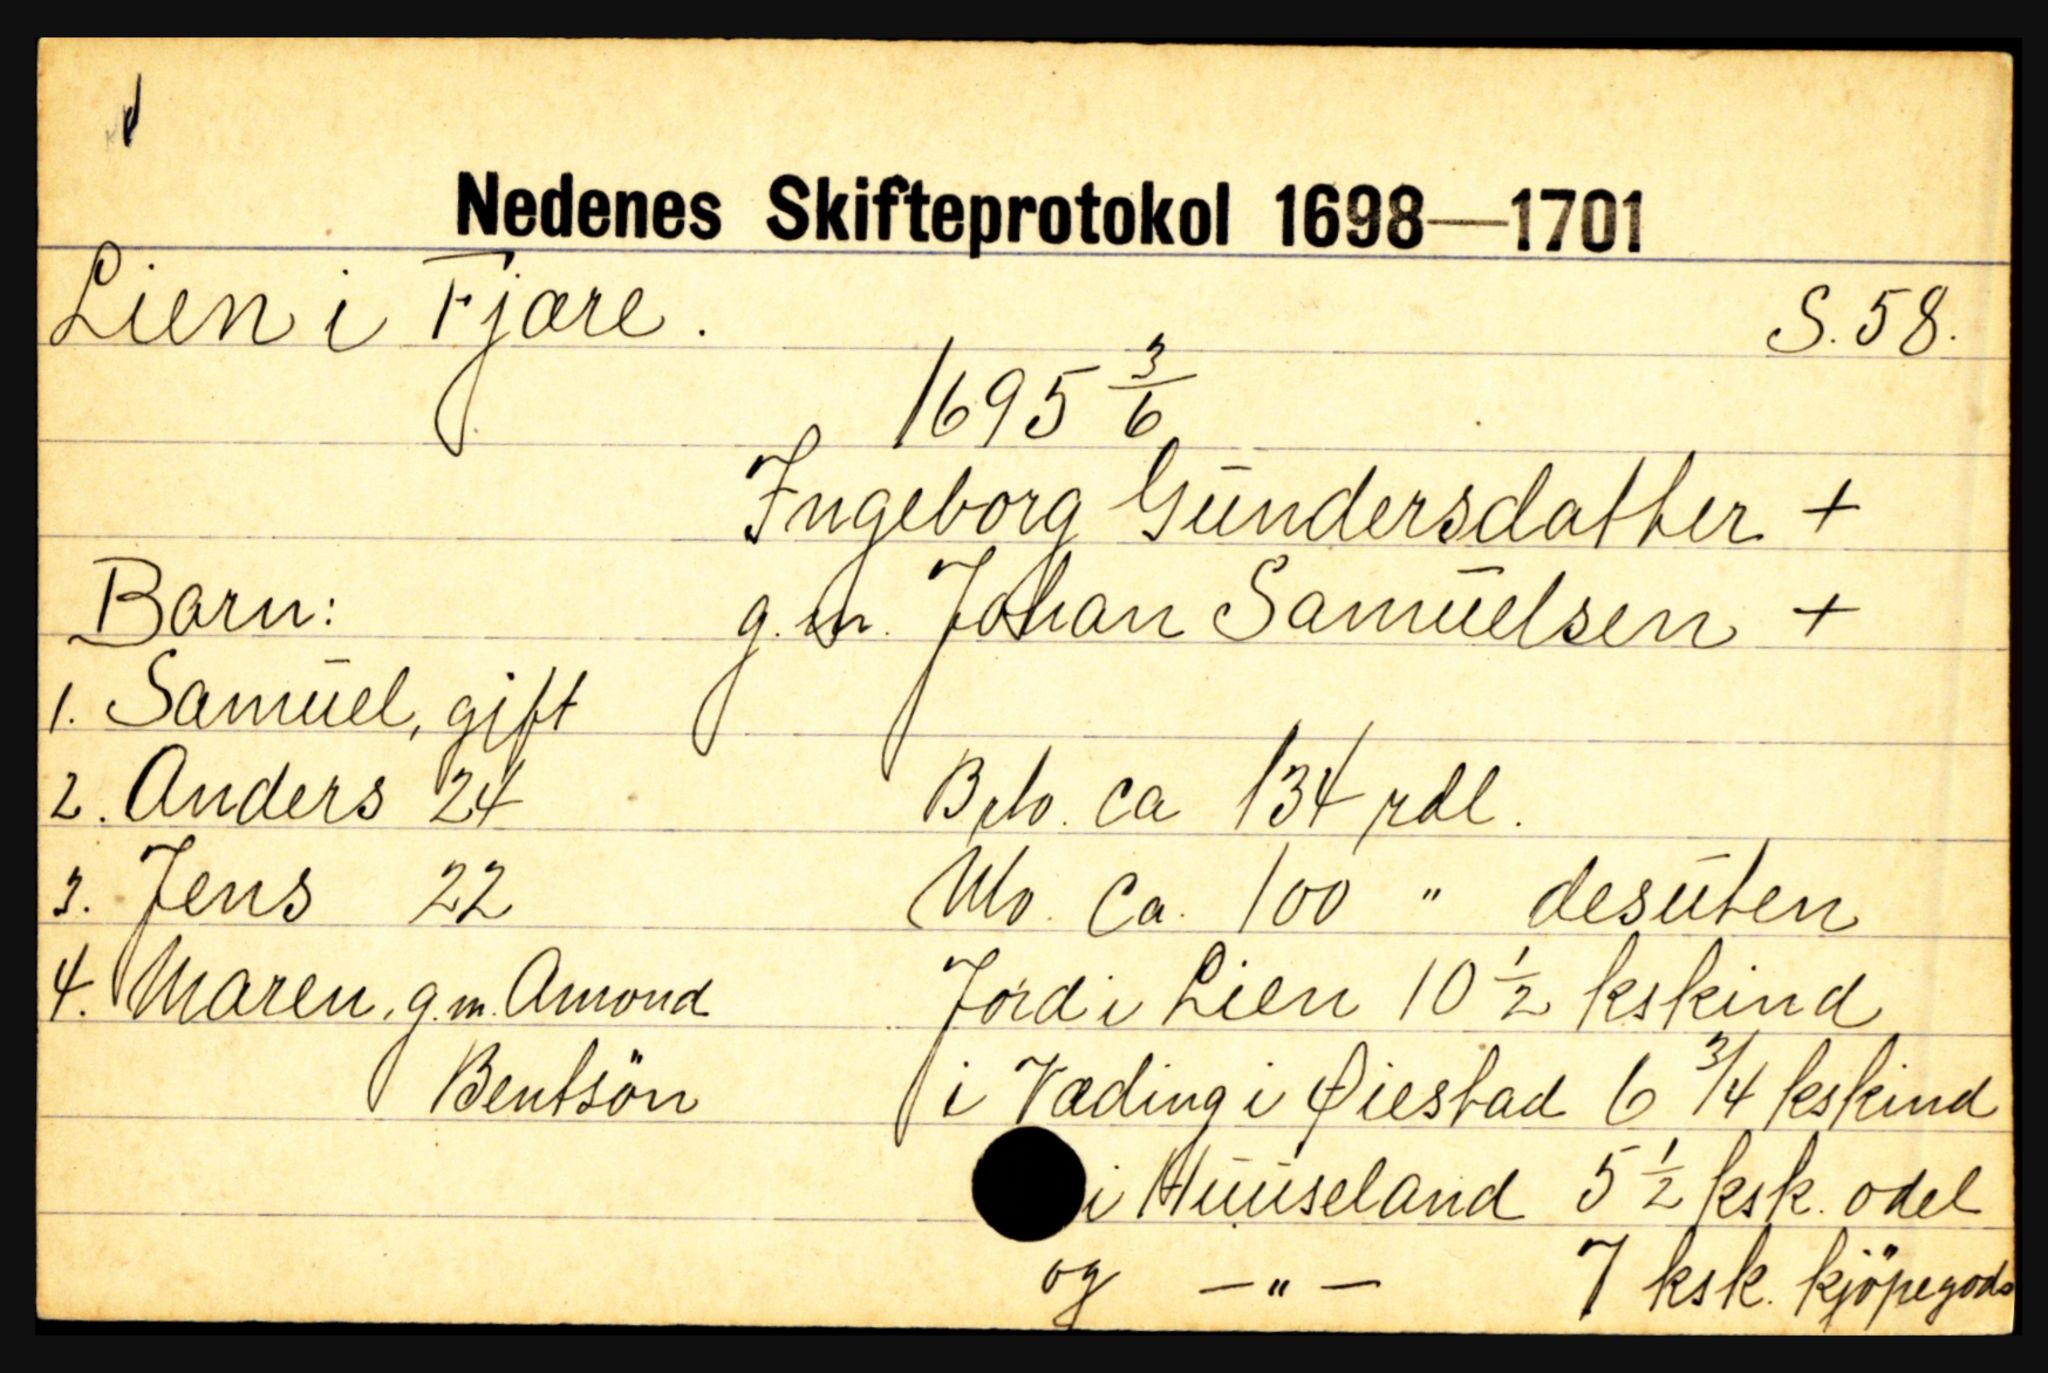 Nedenes Skifteprotokol 1698—1701
Lien i Fjære. S. 58.
1695 3/6
Ingeborg Gundersdatter +
Barn: g.m. Johan Samuelsen +
1. Samuel, gift
2. Anders 24 Bro. ca 134 rdl.
3. Jens 22 Mo. Ca. 100 " desuten
4. Maren, g.m. Amond Jord i Lien 10 1/2 kskind
Bentsön i Væding i Øiestad 6 3/4 kskind
i Huuseland 5 1/2 ksk. odel
og — " — 7 ksk. kjöpegods